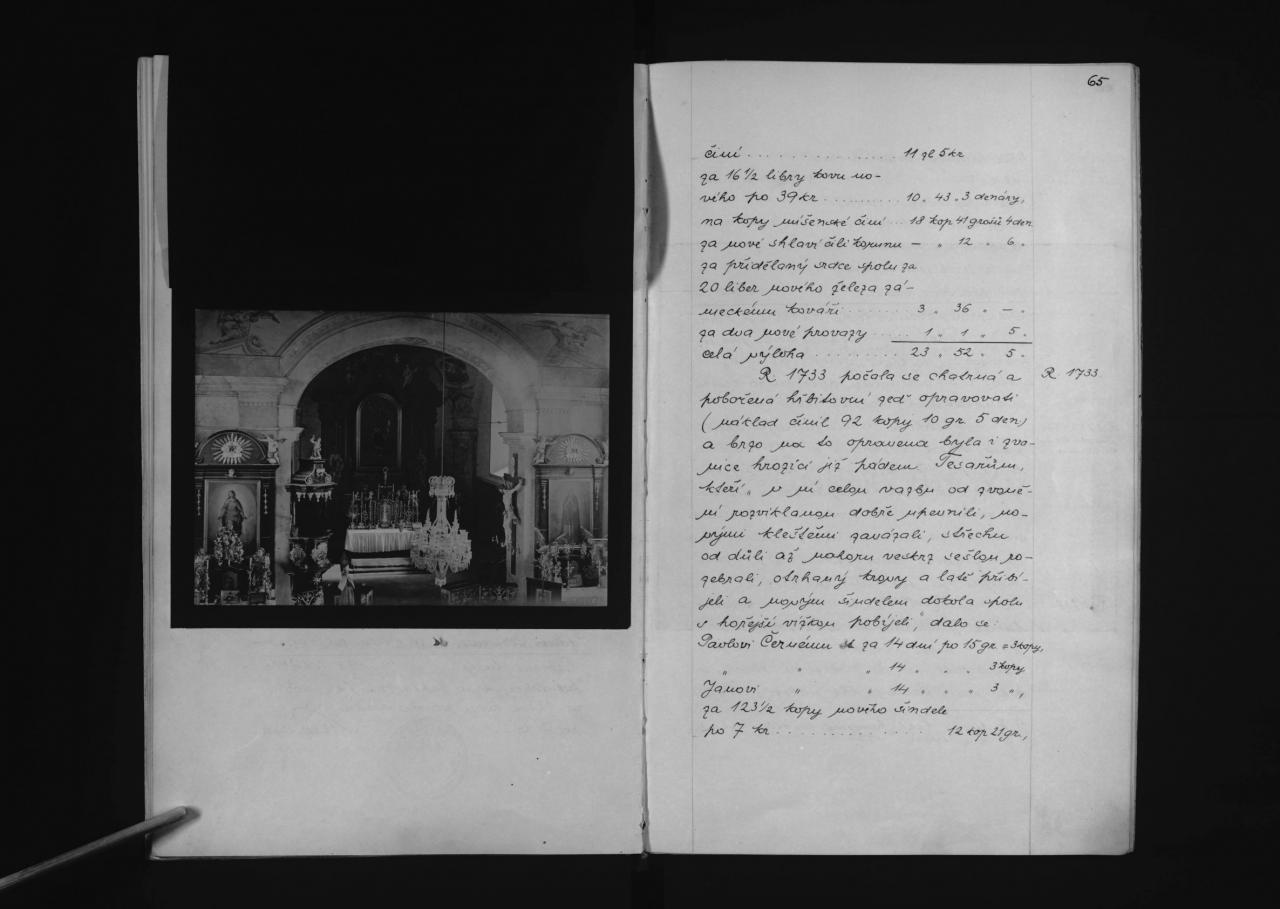 65
činí . . . . . . . . . . . . . . . 11 zl 5 kr
za 16 1/2 libry kovu no-
vého po 39 kr . . . . . . . . . . 10 „ 43 „ 3 denáry,
na kopy míšenské činí . . 18 kop 41 grošů 4 den
za nové shlaví čili korunu — „ 12 „ 6 „
za přidělaný srdce spolu za
20 liber nového železa zá-
meckému kováři . . . . . . . 3 „ 36 „ — „
za dva nové provazy . . . . . 1 „ 1 „ 5 „
celá výloha . . . . . . . . . 23 „ 52 „ 5 „
R. 1733 počala se chatrná a R. 1733.
pobořená hřbitovní zeď opravovati
(náklad činil 92 kopy 10 gr. 5 den)
a brzo na to opravena byla i zvo-
nice hrozící již pádem. Tesařům,
kteří „v ní celou vazbu od zvoně-
ní rozviklanou dobře upevnili, no-
vými kleštěmi zavázali, střechu
od důli až nahoru veskrz sešlou ro-
zebrali, otrhaný krovy a latě přibí-
jeli a novým šindelem dokola spolu
s hořejší vížkou pobíjeli," dalo se:
Pavlovi Černému za 14 dní po 15 gr. = 3 kopy,
„ „ „ 14 „ „ „ 3 kopy
Janovi „ „ 14 „ „ „ 3 „,
za 123 1/2 kopy nového šindele
po 7 kr . . . . . . . . . . . . . 12 kop 21 gr.,